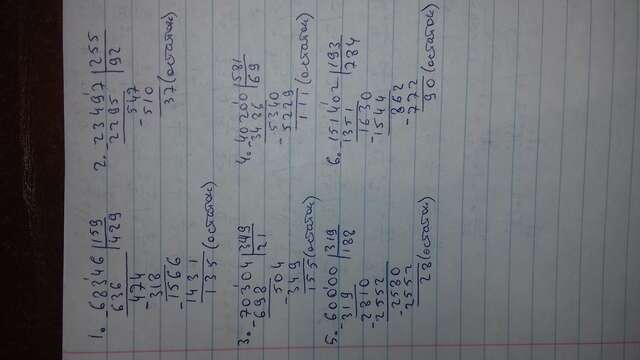 1. 68346 |159
- 636 |429
474
- 318
1566
- 1431
135 (остаток)
2. 23497 |255
- 2295 |92
547
- 510
37 (остаток)
3. 70304 |349
- 698 |21
504
- 349
155 (остаток)
4. 40200 |581
- 3486 |69
5340
- 5229
111 (остаток)
5. 60000 |319
- 319 |188
2810
- 2552
2580
- 2552
28 (остаток)
6. 151402 |193
- 1351 |784
1630
- 1544
862
- 772
90 (остаток)